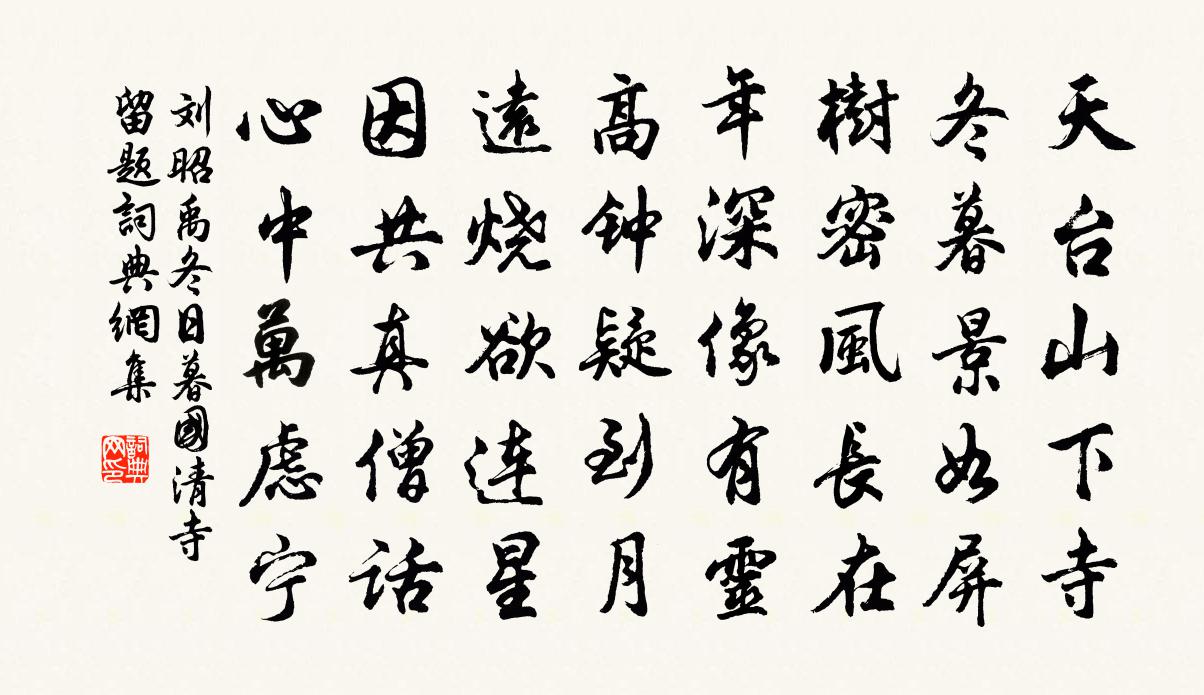 天台山下寺
冬暮景如屏
樹密風長在
年深像有靈
高钟疑到月
遠烧欲连星
因共真僧话
心中萬虑宁
刘昭禹冬日暮國清寺
留题詞典網集
詞典
网印